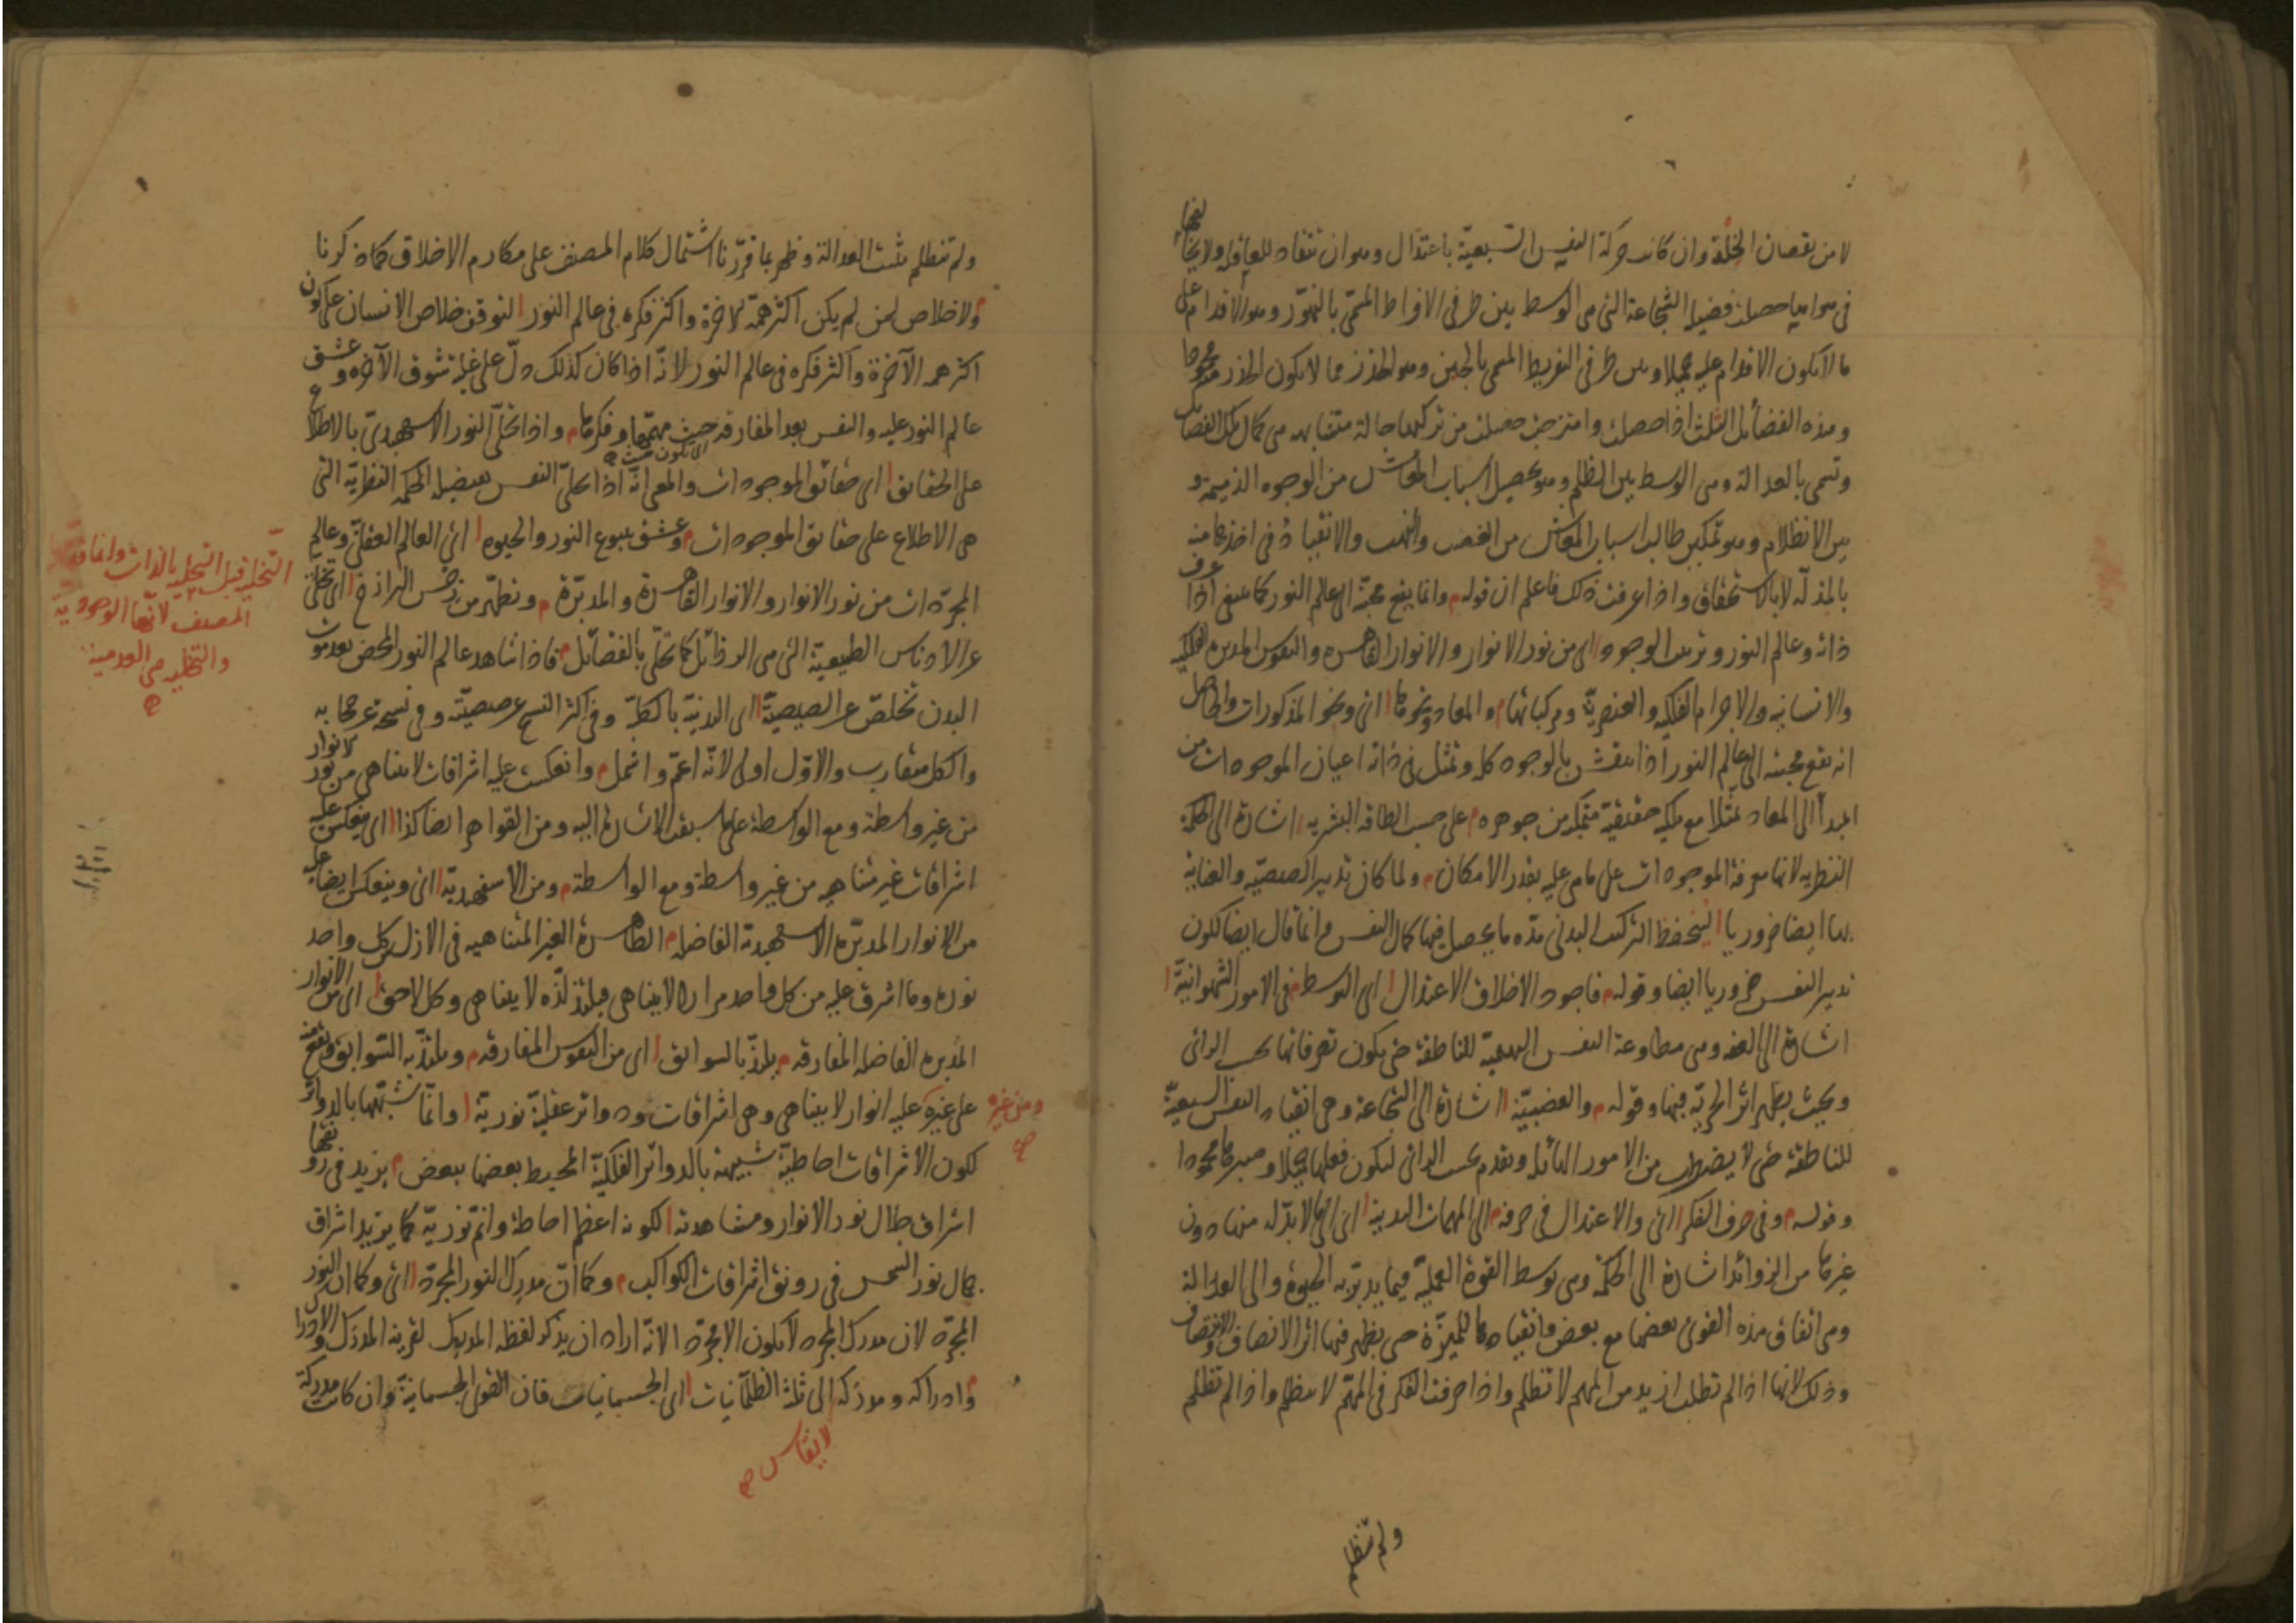 لا من نقصان الخلقة وان كانت حركة النفس السبعيّة باعتدال وهو ان تنقاد للعاقلة ولا يخالفها
في هوامها حصلت فضيلة الشجاعة التى هى الوسط بين طرفى الافراط المسمّى بالتهوّر وهو الاقدام على
ما لا يكون الاقدام عليه جميلا وبين طرفى التفريط المسمى بالجبن وهو الحذر مما لا يكون الحذر محمودا
وهذه الفضائل الثلث اذا حصلت وامتزجت حصلت من تركبها حالة متشابهة هى كمال تلك الفضائل
وتسمى بالعدالة وهى الوسط بين الظلم وهو تحصيل اسباب المعاش من الوجوه الذميمة و
بين الانظلام وهو تمكين طالب اسباب المعاش من الغصب والنهب والانقياد فى اخذها منه
بالمذلّة لا بالاستحقاق واذا عرفت ذلك فاعلم ان قوله وانما يقع محبّة الى عالم النور كما ينبغى اذا عرف
ذاته وعالم النور وترتيب الوجود اى من نور الانوار والانوار القاهرة والنفوس المدبرة الفلكيه
والانسانيه والاجرام الفلكيه والعنصريّة ومركباتها والمعاد ونحوها اى ونحو المذكورات والحاصل
انه تقع محبته الى عالم النور اذا انتقش بالوجود كله وتمثل فى ذاته اعيان الموجودات من
المبدأ الى المعاد تمثلا مع ملكة حقيقية متمكنه من جوهره على حسب الطاقه البشريه اشارة الى الحكمة
النظريه لانها معرفة الموجودات على ما هى عليه بقدر الامكان ولما كان تدبير الصيصيّه والعناية
بها ايضا ضروريا ليتحفظ التركيب البدنى مدّه ما يحصل فيها كمال النفس وانما قال ايضا لكون
تدبير النفس ضروريا ايضا وقوله فاجود الاخلاق الاعتدال اى التوسط فى الامور الشهوانيّة
اشارة الى العفه وهى مطاوعة النفس البهيميّة للناطقة حتى يكون تصرفاتها بحسب الرائى
وبحيث يظهر اثر الحريّه فيها وقوله والغضبيّة اشارة الى الشجاعة وهى انقياد النفس السبعيّة
للناطقة حتى لا يضطرب من الامور الهائلة ويقدم بحسب الرائى ليكون فعلها جميلا وصبرها محمودا
وقوله وفى صرف الفكر اى والاعتدال فى صرفه الى المهمات البدنية اى التى لا بدّ له منها دون
غيرها من الزوائد اشارة الى الحكمة وهى توسط القوة العمليّة فيما يدبّر به الحيوة والى العدالة
وهى اتفاق هذه القوى بعضها مع بعض وانقيادها للمميّزة حتى يظهر فيها اثر الانصاف والانتصاف
وذلك لانها اذا لم تطلب ازيد من المهم لا تظلم واذا صرفت الفكر فى المهمّ لا تنظلم واذا لم تظلم
ولم تنظلم
ولم تنظلم ثبتت العدالة وظهر بما قرّرنا اشتمال كلام المصنف على مكارم الاخلاق كما ذكرنا
ولا خلاص لمن لم يكن اكثر همّه لاخرة واكثر فكره فى عالم النور لتوقف خلاص الانسان على كون
اكثر همه الآخرة واكثر فكره فى عالم النور لانّه اذا كان كذلك دلّ على غلبة شوق الآخره وعشق
عالم النور عليه والنفس بعد المفارقه حيث مهمّها وفكرها واذا تجلّى النور الاسفهبدىّ بالاطلاع
اى تكون حيث
على الحقايق اى حقائق الموجودات والمعنى انّه اذا تحلّى النفس بفضيلة الحكمة النظريّة التى
هى الاطلاع على حقايق الموجودات وعشق ينبوع النور والحيوه اى العالم العقلىّ وعالم
المجرّدات من نور الانوار والانوار القاهرة والمدبّرة وتطهّر من رجس البرازخ اى تخلّى
عن الادناس الطبيعيّة التى هى الرذائل كما تحلّى بالفضائل فاذا شاهد عالم النور المحض بعد موت
البدن تخلّص عن الصيصيّة اى البدنيّة بالكليّة وفى اكثر النسخ عن صيصيّته وفى نسخة عن حجابه
والكل متقارب والاوّل اولى لانّه اعمّ واشمل وانعكست عليه اشراقات لا يتناهى من نور الانوار
من غير واسطة ومع الواسطة على ما سبقت الاشارة اليه ومن القواهر ايضا كذا اى ينعكس عليه
اشراقات غير متناهيه من غير واسطة ومع الواسطة ومن الاسفهبديّة اى وينعكس ايضا عليه
من الانوار المدبّره الاسفهبدية الفاضله الطاهرة الغير المتناهيه فى الازل من كل واحد
نوره وما اشرق عليه من كل واحد مرارا لا يتناهى فيلتذّ لذّه لا يتناهى وكل لاحق اى من الانوار
المدبره الفاضله المفارقه يلتذّ بالسوابق اى من النفوس المفارقه ويلتذّ به السّوابق وتقع منه
ومن غيره صح
على غيره وعليه انوار لا يتناهى وهى اشراقات ودوائر عقليّة نوريّة وانّما شبّهها بالدوائر
لكون الاشراقات احاطيّة شبيهة بالدوائر الفلكيّة المحيط بعضها ببعض يزيد فى رونقها
اشراق جلال نور الانوار ومشاهدته لكونه اعظم احاطة واتمّ نوريّة كما يزيد اشراق
جمال نور الشمس فى رونق اشراقات الكواكب وكما انّ مدرك النور المجرّد اى وكما ان النور
المجرّد لان مدرك المجرد لا يكون الا مجرّدا الا انّه اراد ان يذكر لفظه المدرك لقرينة المدرك والادراك
وادراكه ومدركه الى ثلثة الظلمانيات اى الجسمانيات فان القوى الجسمانيّة وان كانت مدركة
لا يقاس صح
التخليه قبل التحليه بالذات وانما قدّم
المصنف لانّها الوجوديّة
والتخليه هى العدمية